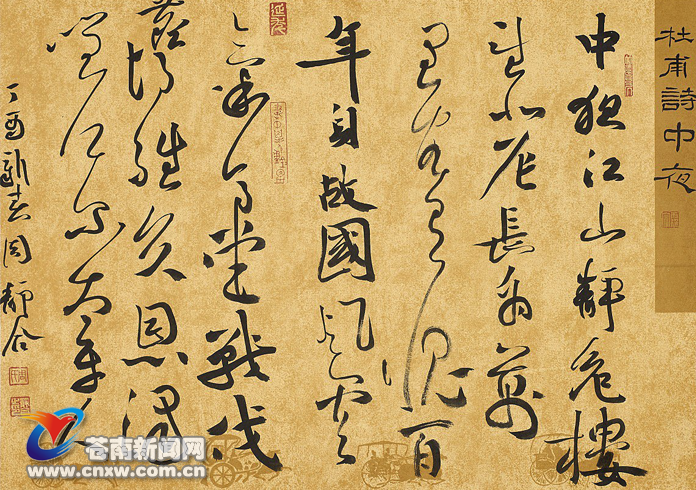 杜甫詩中夜
中夜江山靜危樓
望北辰長為萬
里客有愧百
年身故國風雲
氣高堂戰伐
塵胡雛負恩澤
嗟尔太平人
丁酉新春周靜合
苍南新闻网
www.cnxw.com.cn